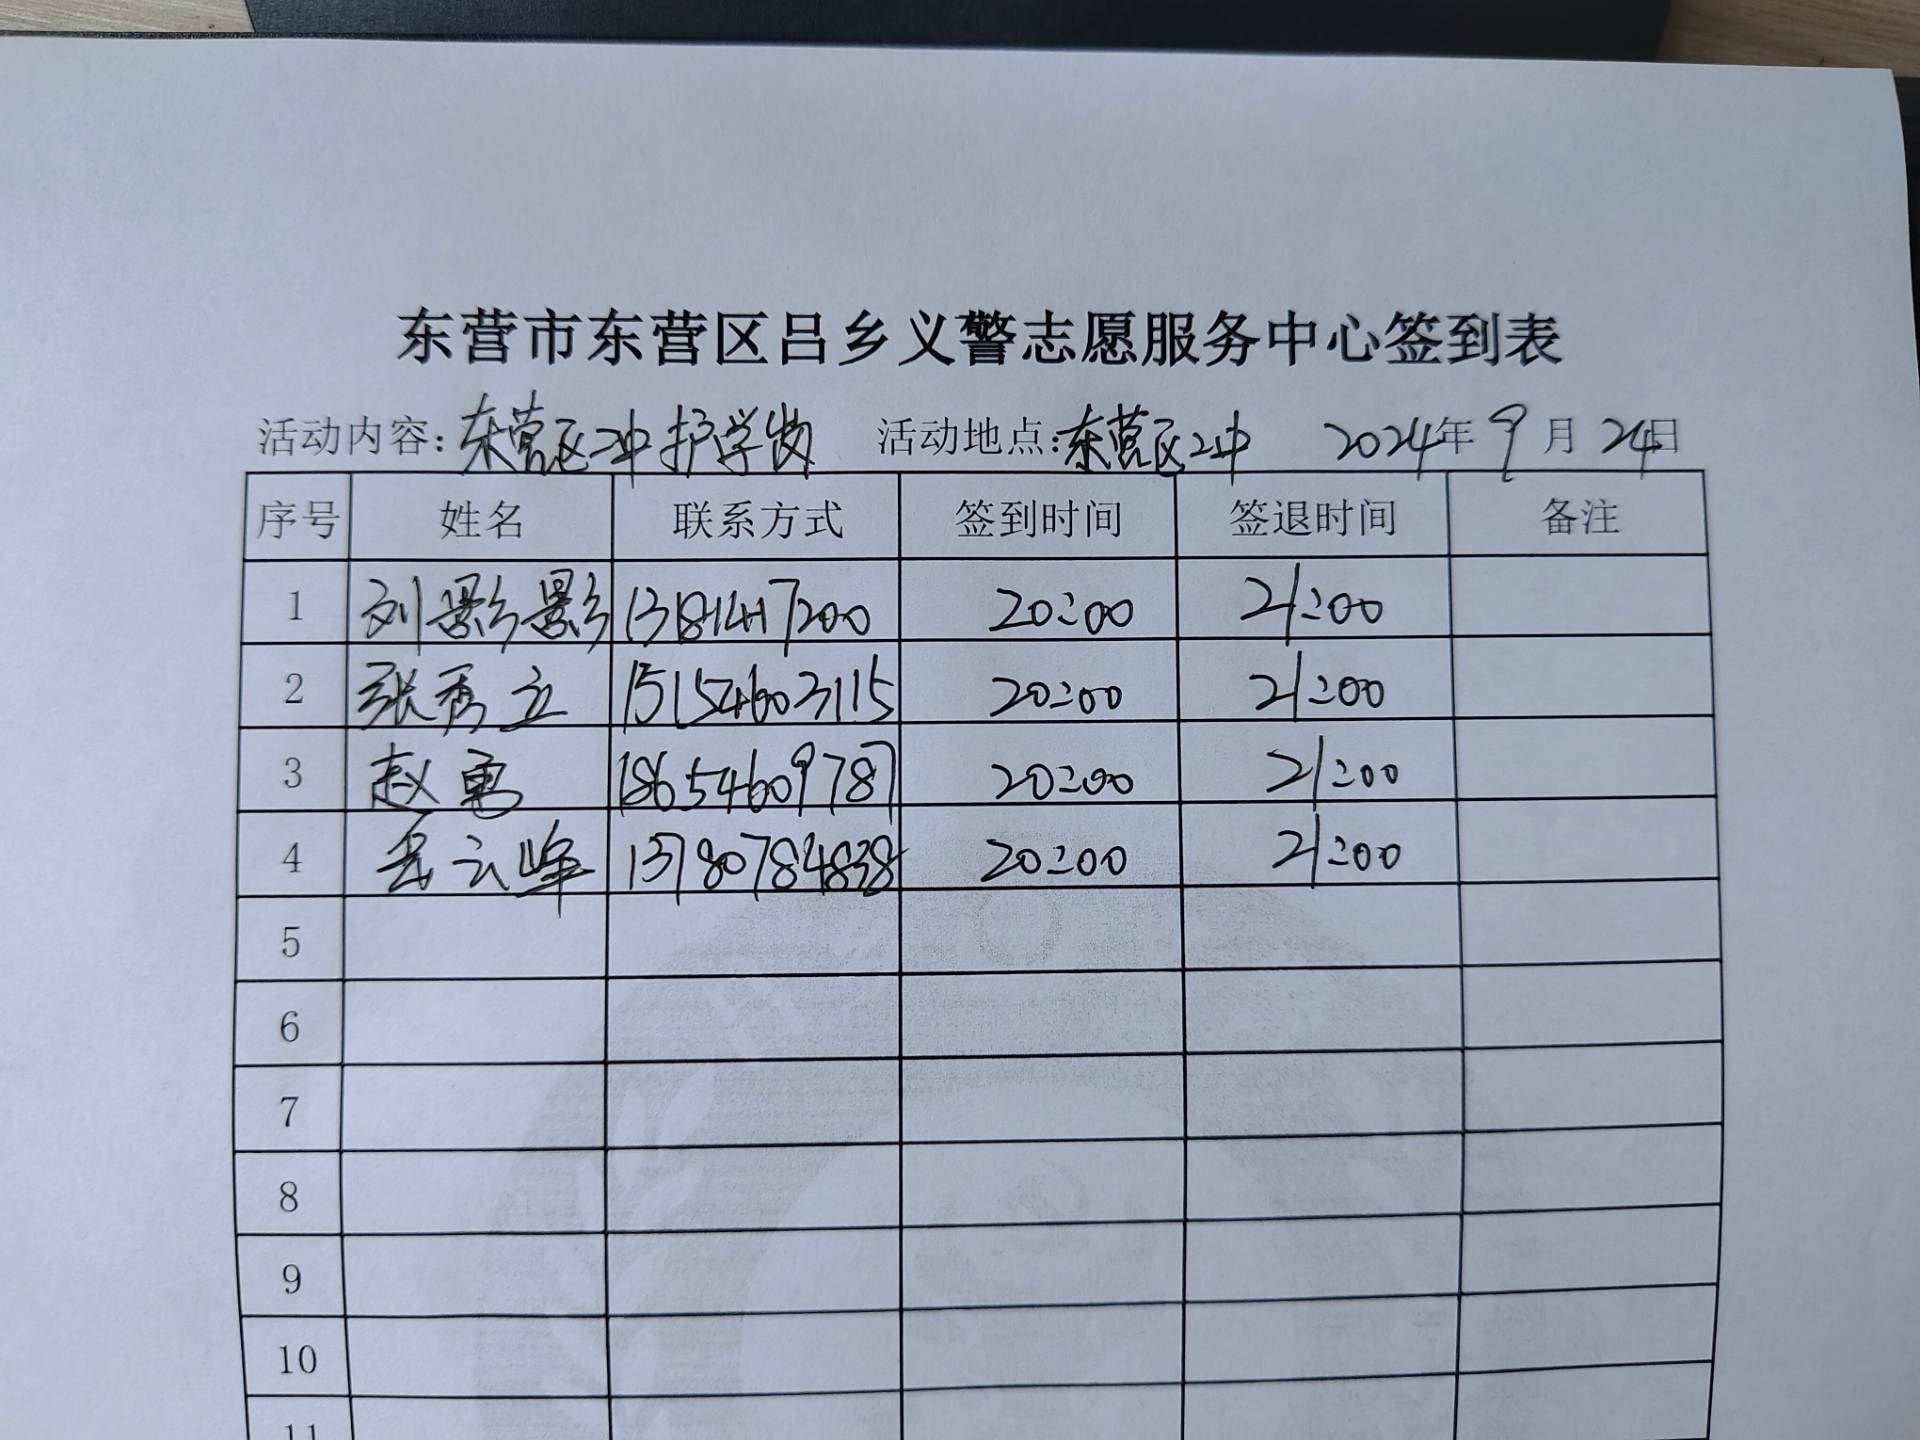 东营市东营区吕乡义警志愿服务中心签到表
活动内容：东营区二中护学岗 活动地点：东营区2中 2024年9月24日
序号 姓名 联系方式 签到时间 签退时间 备注
1 刘影影 13181417200 20:00 21:00
2 张秀立 15154603115 20:00 21:00
3 赵勇 18654609787 20:00 21:00
4 岳云峰 13780784838 20:00 21:00
5
6
7
8
9
10
11